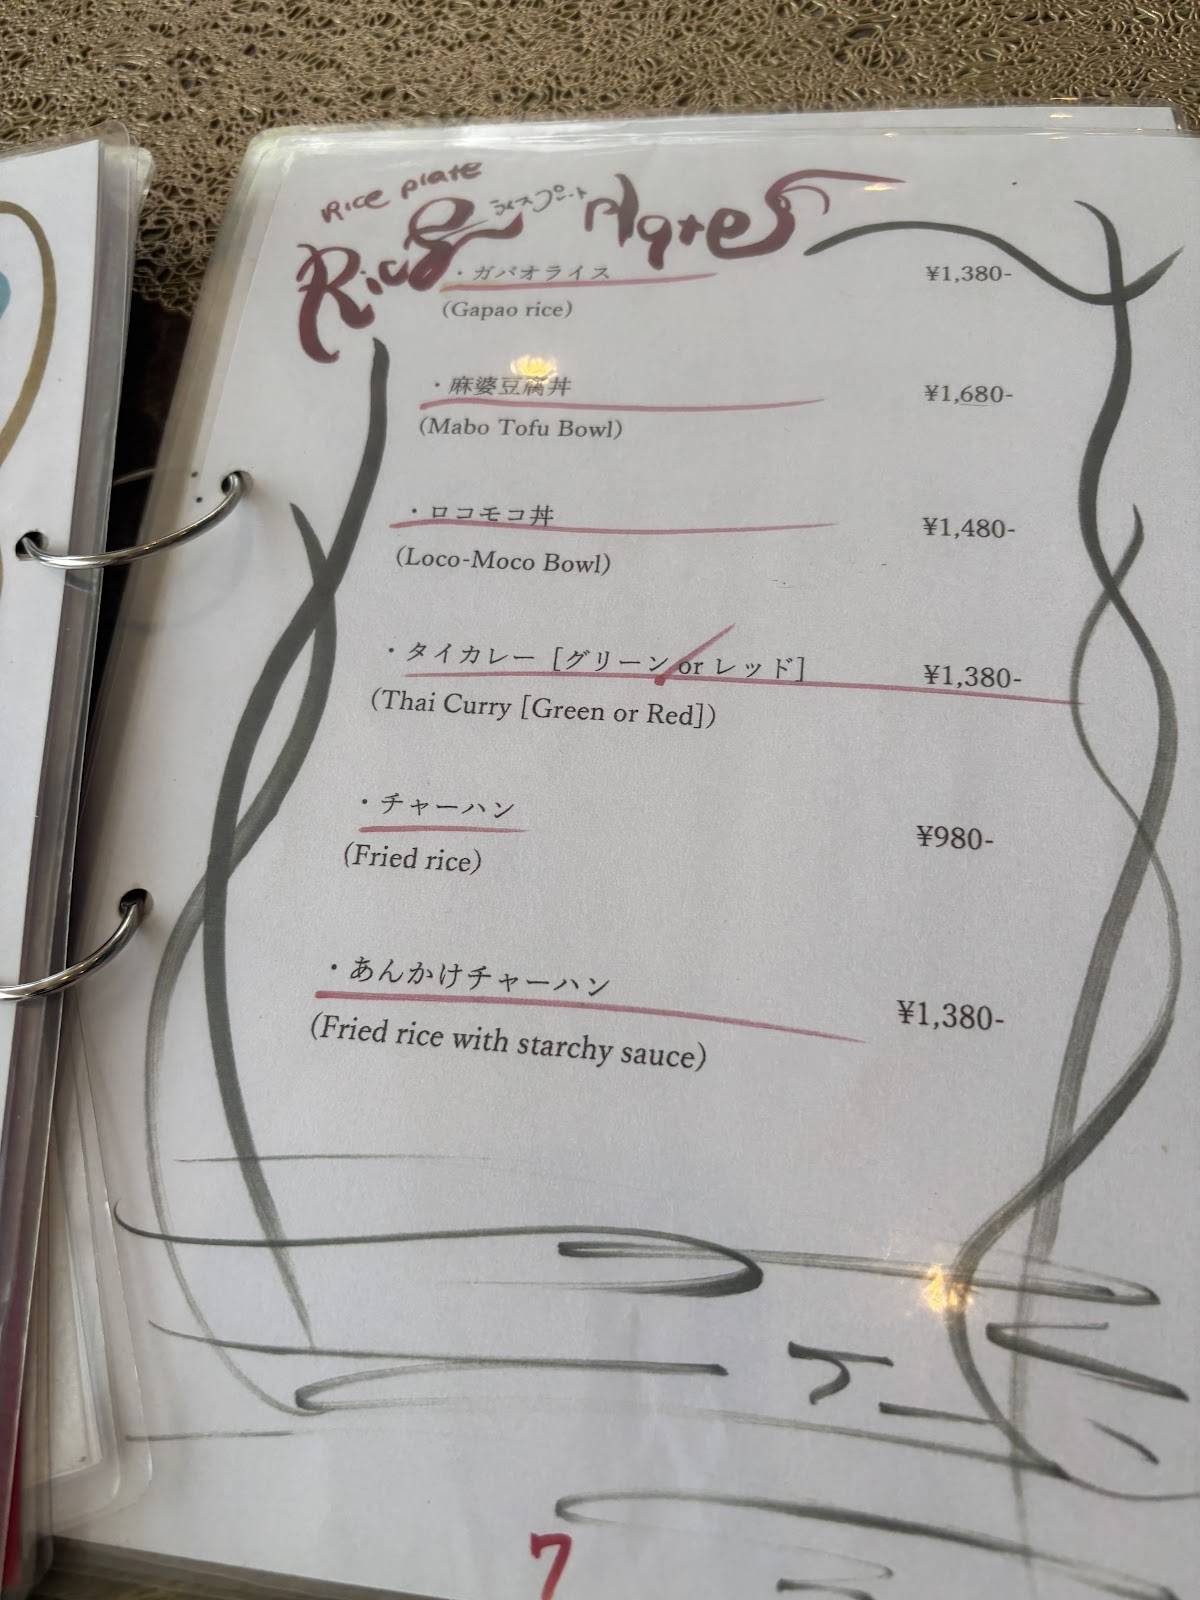 Rice plate
ライスプレート
Rice Plates
・ガパオライス ¥1,380-
(Gapao rice)
・麻婆豆腐丼 ¥1,680-
(Mabo Tofu Bowl)
・ロコモコ丼 ¥1,480-
(Loco-Moco Bowl)
・タイカレー [グリーン or レッド] ¥1,380-
(Thai Curry [Green or Red])
・チャーハン ¥980-
(Fried rice)
・あんかけチャーハン ¥1,380-
(Fried rice with starchy sauce)
7